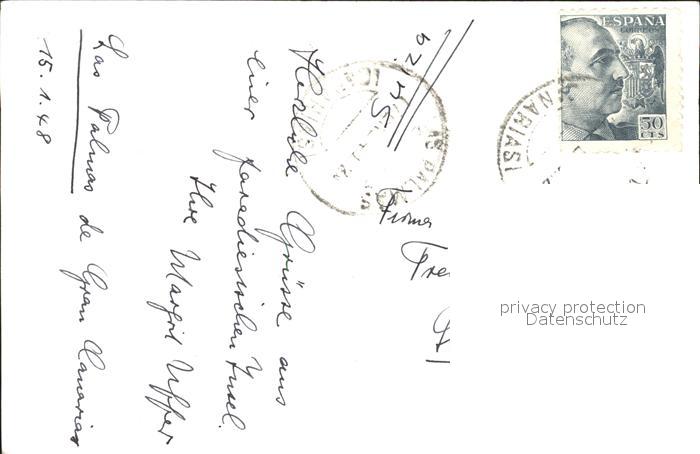 15. 1. 48
Las Palmas de Gran Canarias
Herzliche Grüsse aus
einer paradiesischen Insel.
Ihre Margit
Firma
ESPAÑA
CORREOS
50
CTS
NARIAS
privacy protection
Datenschutz